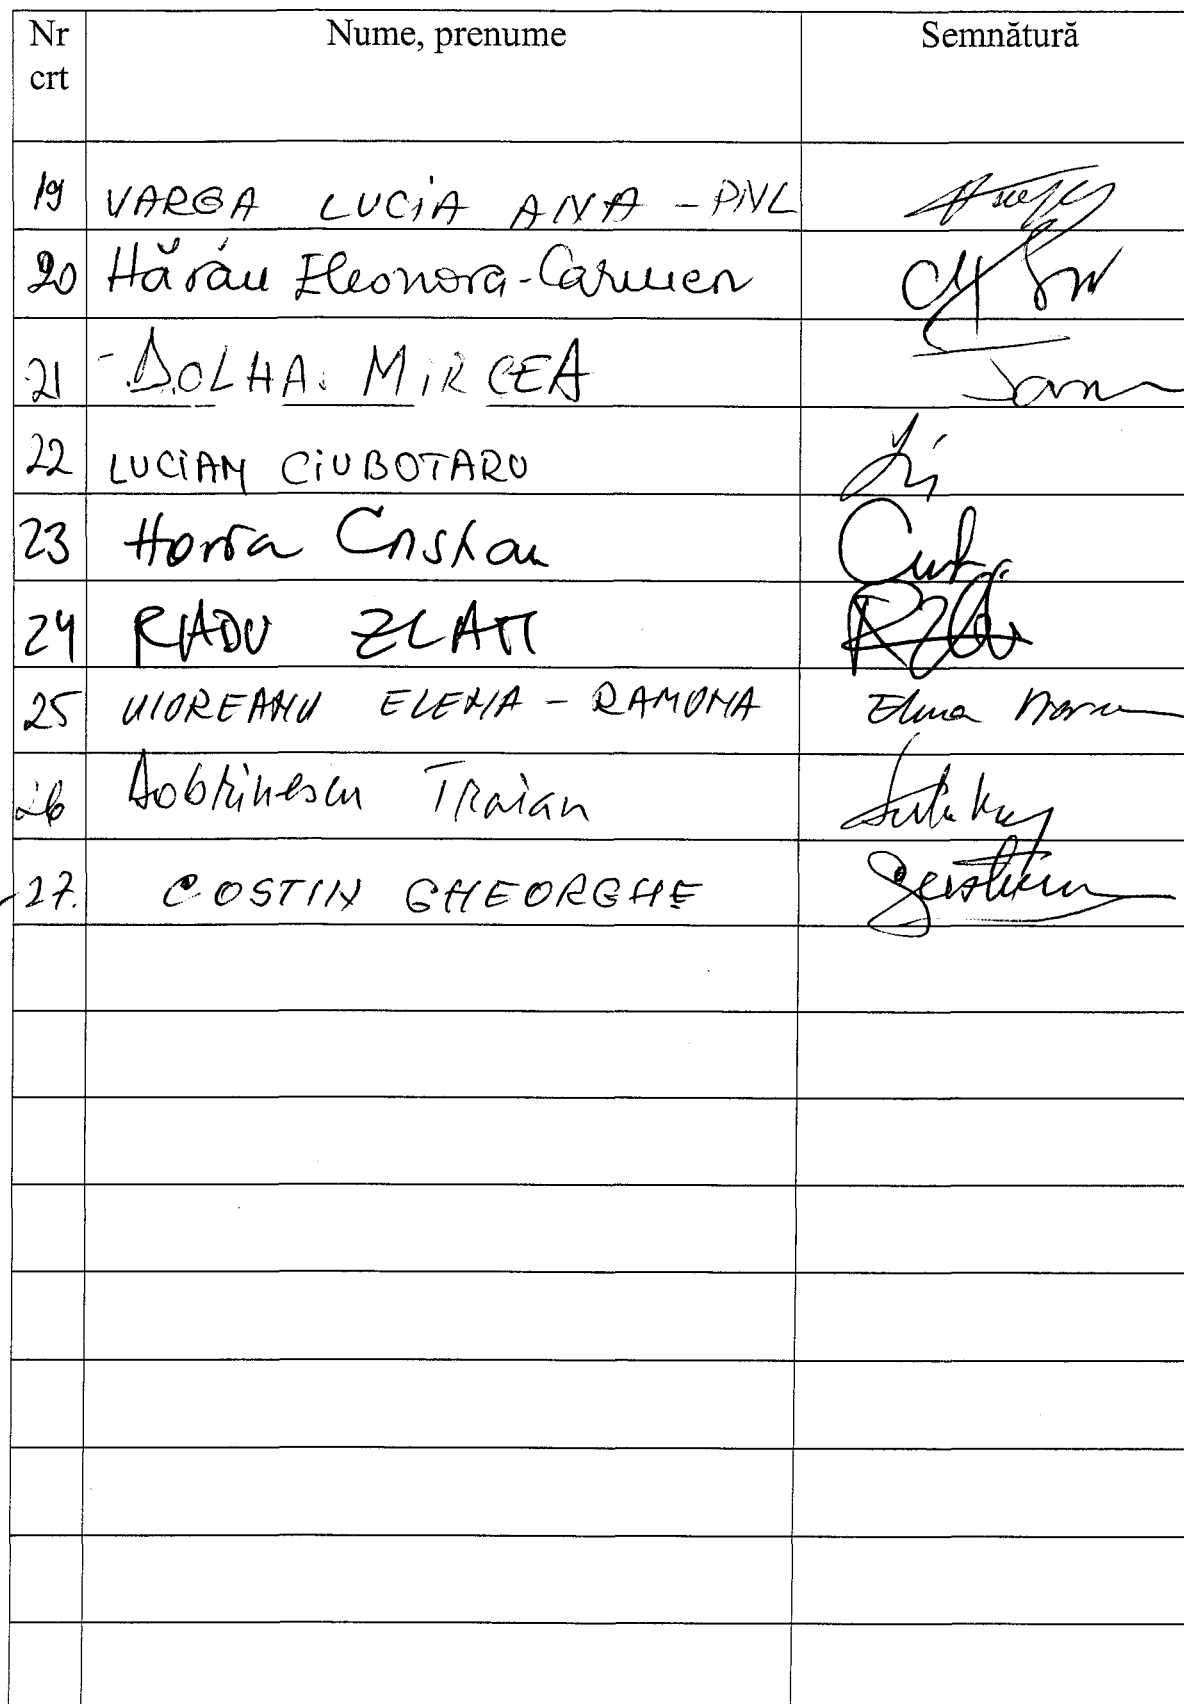 Nr crt Nume, prenume Semnătură
19 VARGA LUCIA ANA - PNL
20 Hărău Eleonora-Carmen
21 - DOLHA MIRCEA
22 LUCIAN CIUBOTARU
23 Horia Cristian
24 RADU ZLATI
25 UIOREANU ELENA - RAMONA
26 Dobrinescu Traian
27. COSTIN GHEORGHE